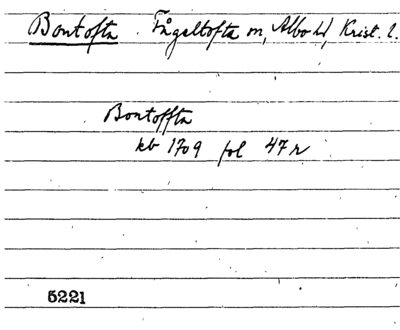 Bontofta . Fågeltofta sn, Albo hd, Krist. l.
Bontoffta
kb 1709 fol 47 r
5221